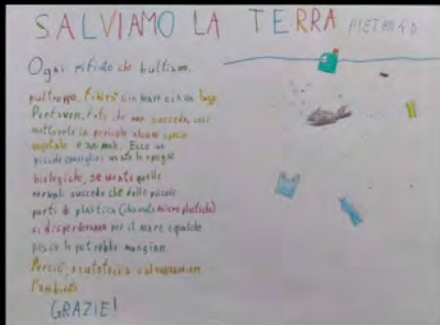 SALVIAMO LA TERRA PIETRO 4°D
Ogni rifiuto che buttiamo,
purtroppo, finirà in mare o in un lago
Per favore, fate che non succeda, così
metterete in pericolo alcune specie
vegetali e animali. Ecco un
piccolo consiglio: usate le spugne
biologiche, se usate quelle
normali succede che delle piccole
parti di plastica (chiamate microplastiche)
si disperderanno per il mare e qualche
pesce le potrebbe mangiare
Perciò, aiutateci a salvaguardare
l'ambiente
GRAZIE!